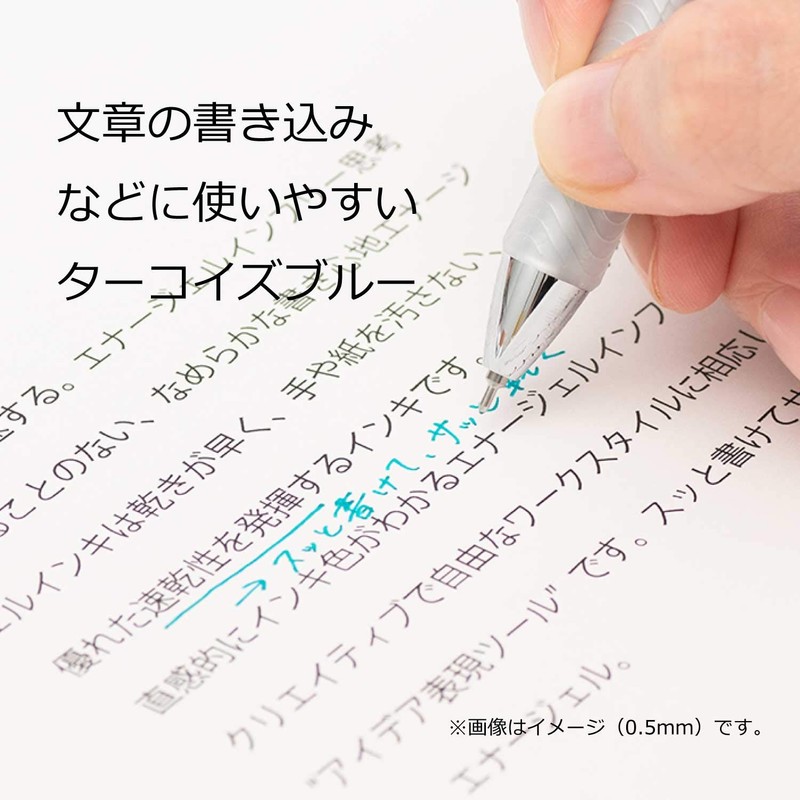 文章の書き込み
などに使いやすい
ターコイズブルー
思考
する。エナージェルインフリー
ることのない、なめらかな書き心地エナージ
ェルインキは乾きが早く、手や紙を汚さない、
優れた速乾性を発揮するインキです。
→スッと書けて、サッと乾く
直感的にインキ色がわかるエナージェルインフ
クリエイティブで自由なワークスタイルに相応し
"アイデア表現ツール"です。スッと書けてサ
エナージェル。
※画像はイメージ（0.5mm）です。